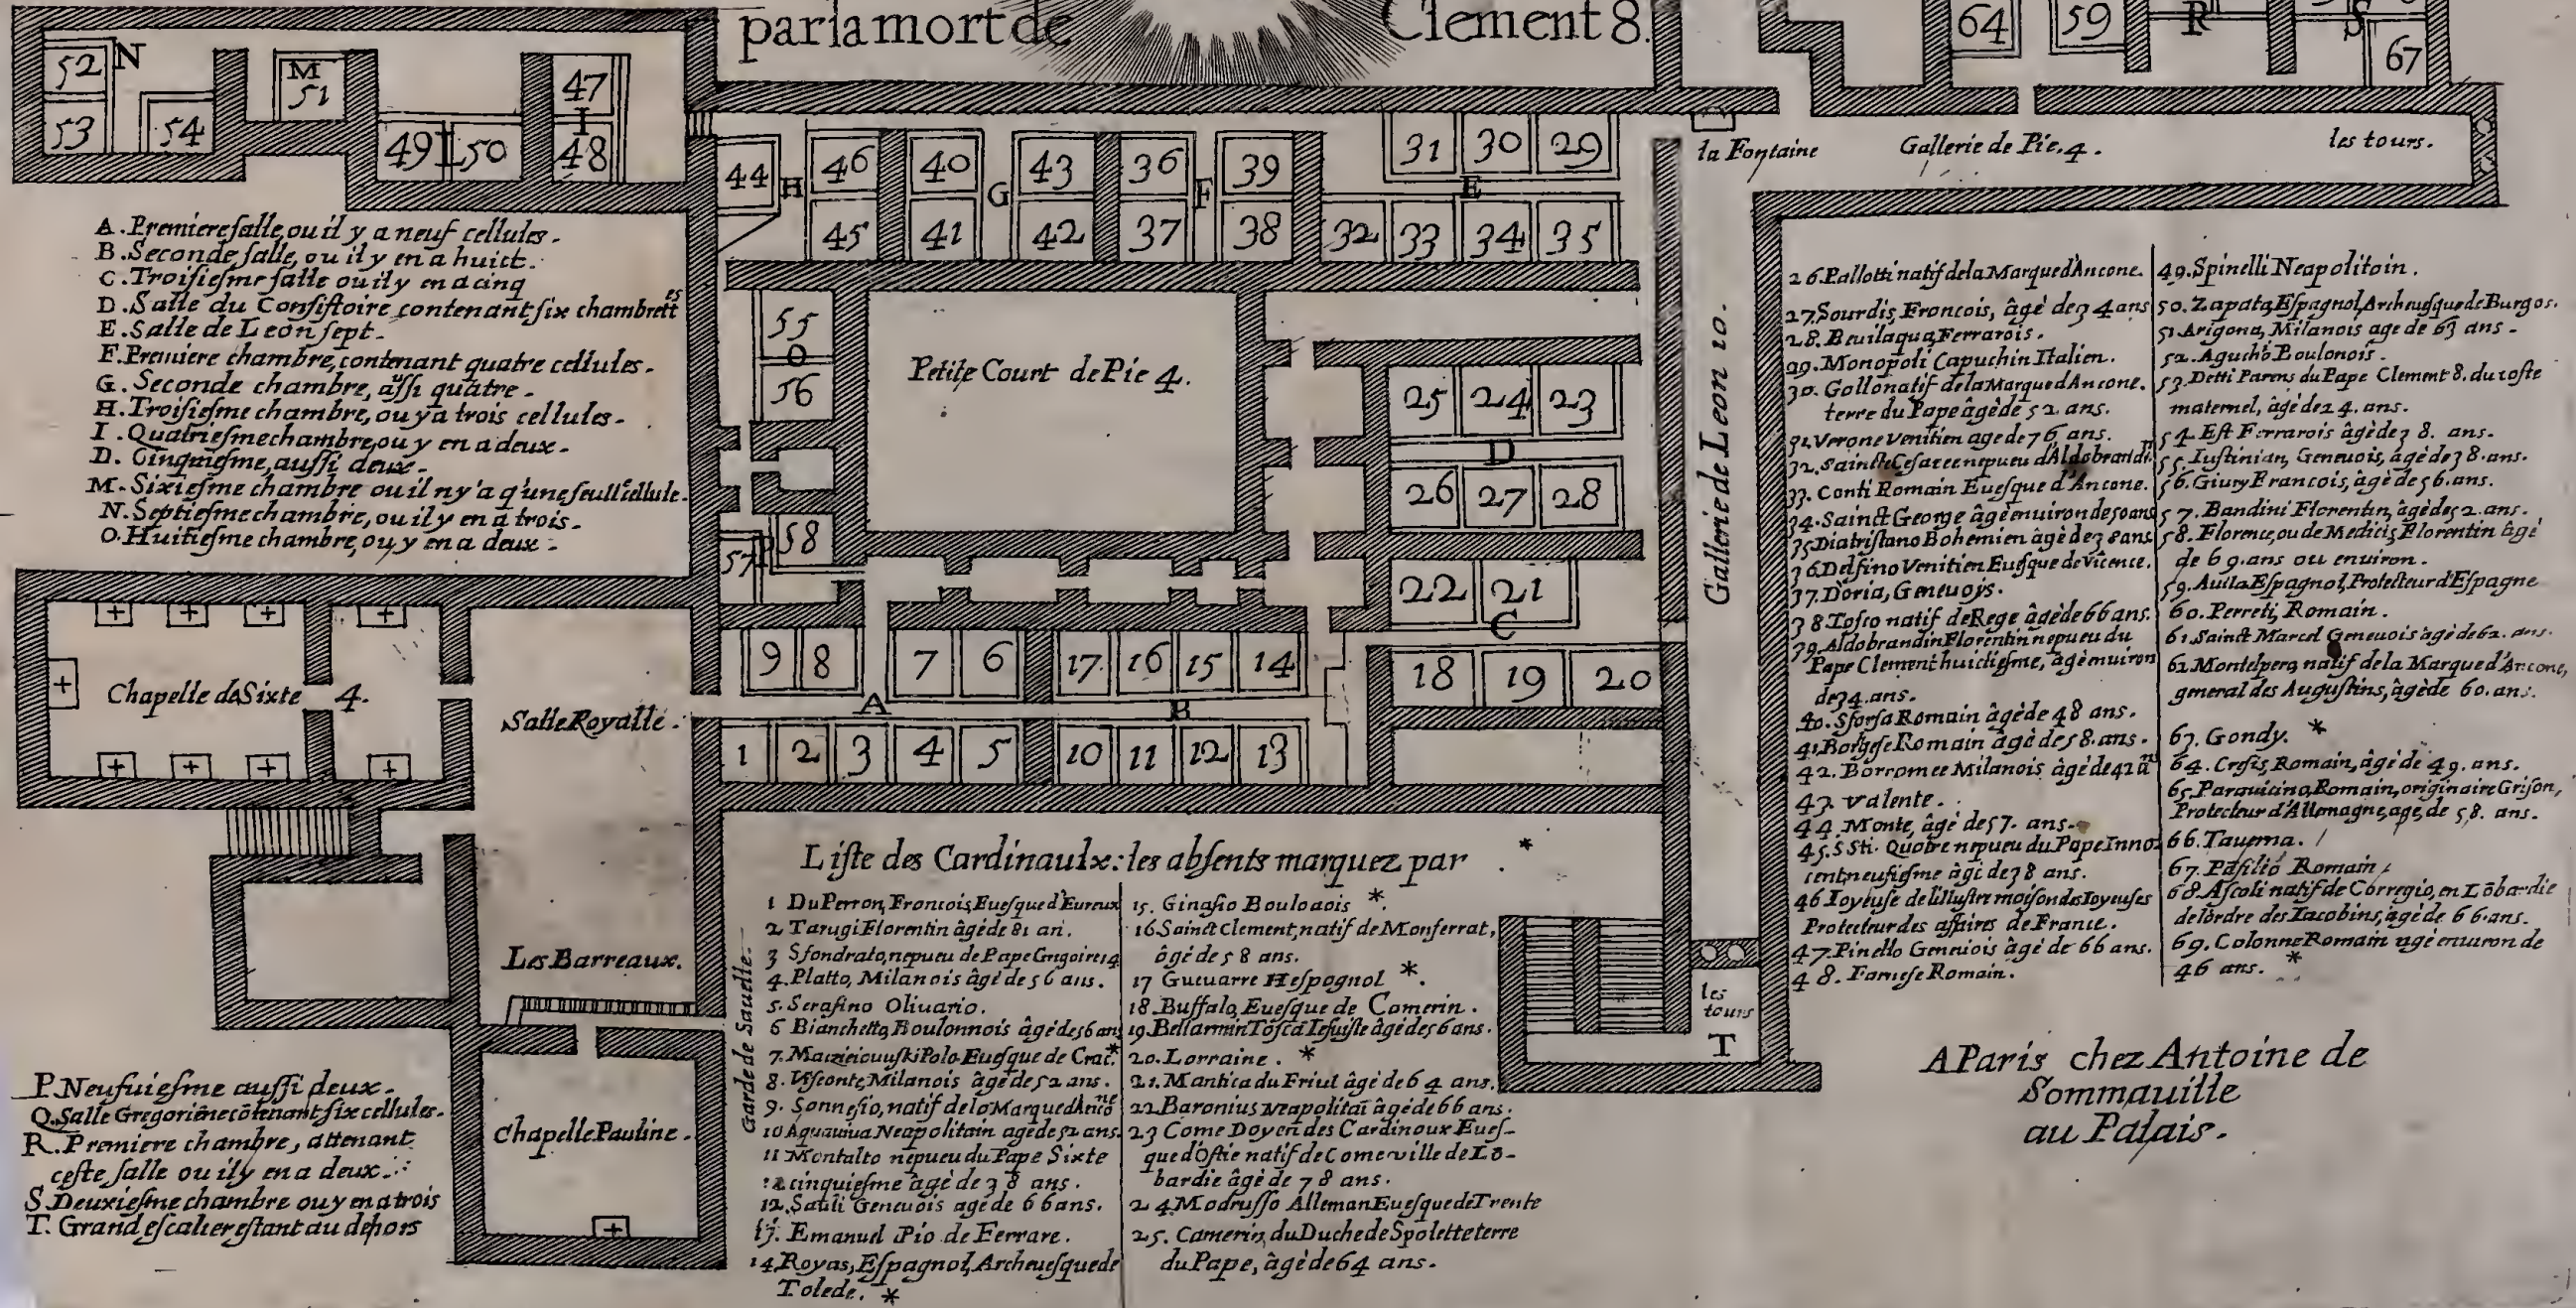 par la mort de Clement 8.
64 59 R S 67
52 N M 47
53 54 51 49 L 50 I 48
44 H 46 40 G 43 36 F 39 31 30 29
45 41 42 37 38 E 32 33 34 35
la Fontaine
Gallerie de Pie. 4.
les tours.
A. Premiere salle, ou il y a neuf cellules.
B. Seconde salle, ou il y en a huict.
C. Troisiesme salle ou il y en a cinq
D. Salle du Consistoire contenant six chambrettes
E. Salle de Leon sept.
F. Premiere chambre, contenant quatre cellules.
G. Seconde chambre, aussi quatre.
H. Troisiesme chambre, ou y a trois cellules.
I. Quatriesme chambre, ou y en a deux.
D. Cinquiesme, aussi deux.
M. Sixiesme chambre ou il ny'a q'une seulle cellule.
N. Septiesme chambre, ou il y en a trois.
O. Huitiesme chambre, ou y en a deux.
55 O 56
Petite Court de Pie 4.
25 24 23
D
26 27 28
58
57 P
22 21
C
18 19 20
Gallerie de Leon 10.
Chapelle de Sixte 4.
Salle Royalle.
9 8 7 6 17 16 15 14
A B
1 2 3 4 5 10 11 12 13
Les Barreaux.
Chapelle Pauline.
Garde de Sauelle.
P. Neufuiesme aussi deux.
Q. Salle Gregoriēne cōtenant six cellules.
R. Premiere chambre, attenant
ceste salle ou il y en a deux.
S. Deuxiesme chambre ou y en a trois
T. Grand escalier estant au dehors
Liste des Cardinaulx: les absents marquez par *
1 Du Perron, Francois, Euesque d'Eureux
2 Tarugi Florentin âgé de 81 an.
3 Sfondrato, nepueu de Pape Gregoire 14
4. Platto, Milanois âgé de 56 ans.
5. Serafino Oliuario.
6 Bianchetto, Boulonnois âgé de 56 ans
7. Polo. Euesque de Crac. *
8. Visconte, Milanois âgé de 52 ans.
9. Sannesio, natif de la Marque d'Ancōne
10 Aquauiua Neapolitain agé de 52 ans.
11 Montalto nepueu du Pape Sixte
cinquiesme âgé de 38 ans.
12. Sauli Geneuois agé de 66 ans.
13. Emanuel Pio de Ferrare.
14. Royas, Espagnol, Archeuesque de
Tolede. *
15. Ginasio Boulonois *
16. Sainct Clement, natif de Monferrat,
âgé de 58 ans.
17 Gueuarre Hespagnol *
18. Buffalo, Euesque de Camerin.
19. Bellarmin Toscā Iesuiste âgé de 56 ans.
20. Lorraine. *
21. Mantica du Friul âgé de 64 ans.
22. Baronius Neapolitaī âgé de 66 ans.
23 Come Doyen des Cardinaux Eues-
que d'Ostie natif de Come ville de Lō-
bardie âgé de 78 ans.
24. Modrusso Alleman Euesque de Trente
25. Camerin, du Duche de Spolette terre
du Pape, âgé de 64 ans.
les
tours
T
26. Pallotti natif de la Marque d'Ancone.
27. Sourdis, Francois, âgé de 34 ans
28. Beuilaqua, Ferrarois.
29. Monopoli Capuchin Italien.
30. Gallo natif de la Marque d'Ancone.
terre du Pape âgé de 52. ans.
31. Verrone Venitien agé de 76 ans.
32. Saincte Cesaree nepueu d'Aldobrandin
33. Conti Romain Euesque d'Ancone.
34. Sainct George âgé enuiron de 50 ans
35 Diatristano Bohemien âgé de 38 ans
36 Delfino Venitien Euesque de Vicence.
37. Doria, Geneuois.
38 Tosco natif de Rege âgé de 66 ans.
39. Aldobrandin Florentin nepueu du
Pape Clement huictiesme, âgé enuiron
de 34. ans.
40. Sforsa Romain âgé de 48 ans.
41 Borgese Romain âgé de 58. ans.
42. Borromee Milanois âgé de 42 ans
43. Valente.
44. Monte, âgé de 57. ans.
45. S Sti. Quatre nepueu du Pape Inno-
cent neufiesme âgé de 38 ans.
46 Ioyeuse de l'illustre maison des Ioyeuses
Protecteur des affaires de France.
47. Pinello Genuois âgé de 66 ans.
48. Farnese Romain.
49. Spinelli Neapolitain.
50. Zapata, Espagnol, Archeuesque de Burgos.
51. Arigona, Milanois agé de 63 ans.
52. Aguchio Boulonois.
53. Detti Parens du Pape Clement 8. du coste
maternel, âgé de 24. ans.
54. Est Ferrarois âgé de 38. ans.
55. Iustinian, Geneuois, âgé de 38. ans.
56. Giury Francois, âgé de 56. ans.
57. Bandini Florentin, âgé de 52. ans.
58. Florence, ou de Medicis, Florentin âgé
de 69. ans ou enuiron.
59. Auila Espagnol, Protecteur d'Espagne
60. Perreti, Romain.
61. Sainct Marcel Geneuois âgé de 62. ans.
62. Montelpero, natif de la Marque d'Ancone,
general des Augustins, âgé de 60. ans.
63. Gondy. *
64. Cresis, Romain, âgé de 49. ans.
65. Parauicino, Romain, originaire Grison,
Protecteur d'Allemagne, agé, de 58. ans.
66. Tauerna.
67. Pasilio Romain
68. Ascoli natif de Corregio, en Lōbardie
de l'ordre des Iacobins, âgé de 66. ans.
69. Colonne Romain agé enuiron de
46 ans. *
A Paris chez Antoine de
Sommauille
au Palais.